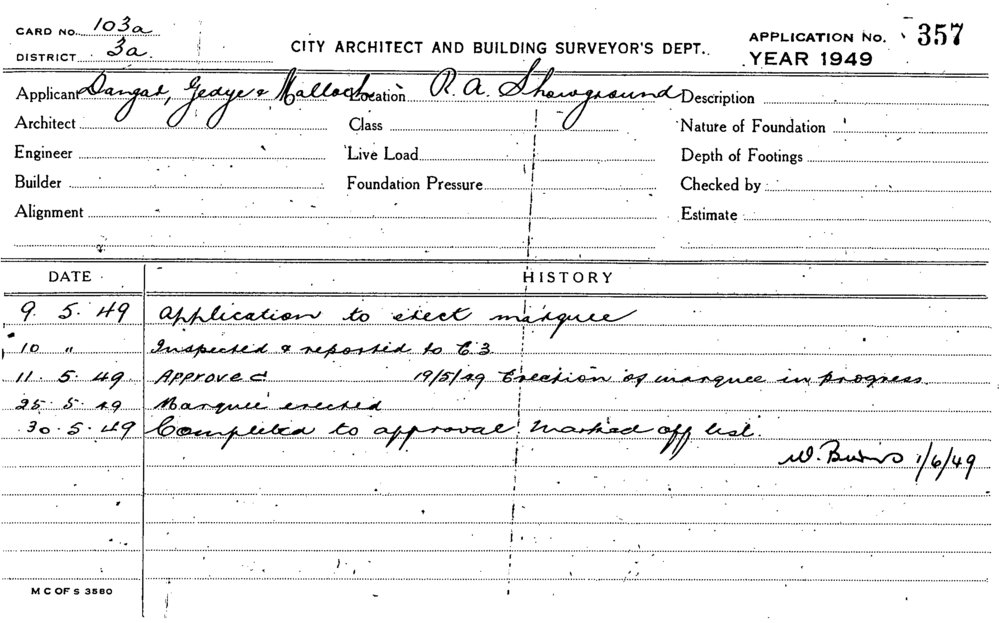 CARD NO. 103a
DISTRICT 3a
CITY ARCHITECT AND BUILDING SURVEYOR'S DEPT.
APPLICATION NO. 357
YEAR 1949
Applicant Dangar, Gedye & Malloch Location R. A. Showground Description
Architect Class Nature of Foundation
Engineer Live Load Depth of Footings
Builder Foundation Pressure Checked by
Alignment Estimate
DATE HISTORY
9. 5. 49 Application to erect marquee
10 " Inspected & reported to C3
11. 5. 49 Approved 19/5/49 Erection of marquee in progress
25. 5. 49 Marquee erected
30. 5. 49 Completed to approval. Marked off list.
W. 1/6/49
M C OF S 3580